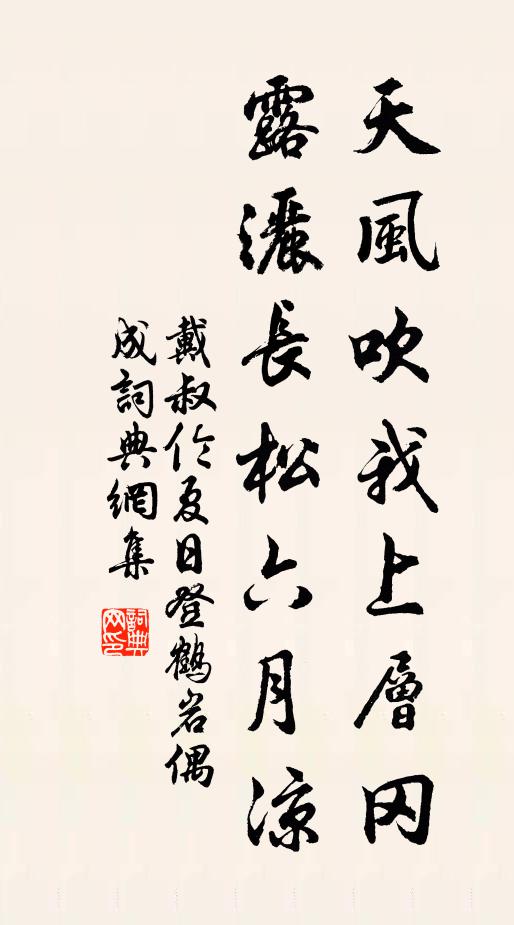 天風吹我上層冈
露灑長松六月涼
戴叔伦夏日登鶴岩偶
成詞典網集
詞典
网印